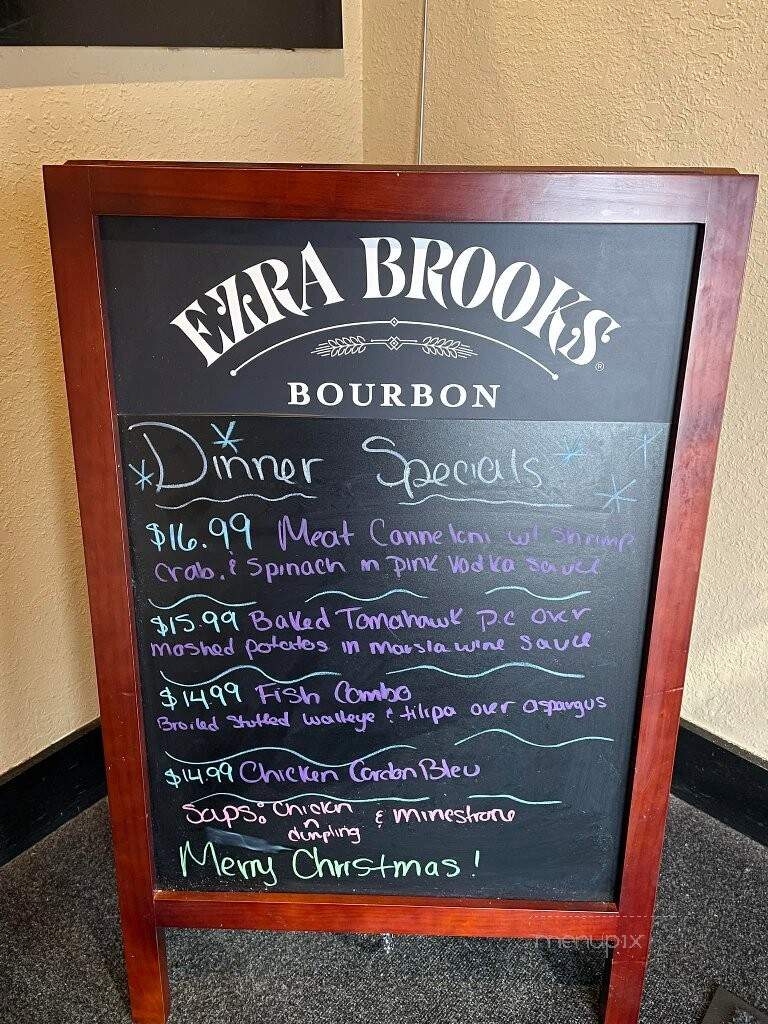 EZRA BROOKS®
BOURBON
Dinner Specials
$16.99 Meat Canneloni w/ shrimp,
crab, & Spinach in pink Vodka sauce
$15.99 Baked Tomahawk p.c over
mashed potatoes in Marsla wine sauce
$14.99 Fish Combo
Broiled Stuffed walleye & tilipa over aspargus
$14.99 Chicken Cordon Bleu
Soups: Chickn & minestrone
n
dumpling
Merry Christmas!
menupix